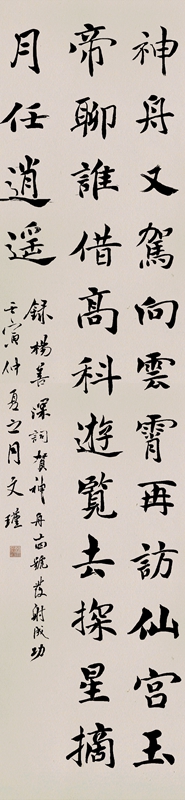 神舟又駕向雲霄再訪仙宮玉
帝聊誰借高科遊覽去探星摘
月任逍遙
錄楊善深詞賀神舟十四號發射成功
壬寅仲夏之月文瑾